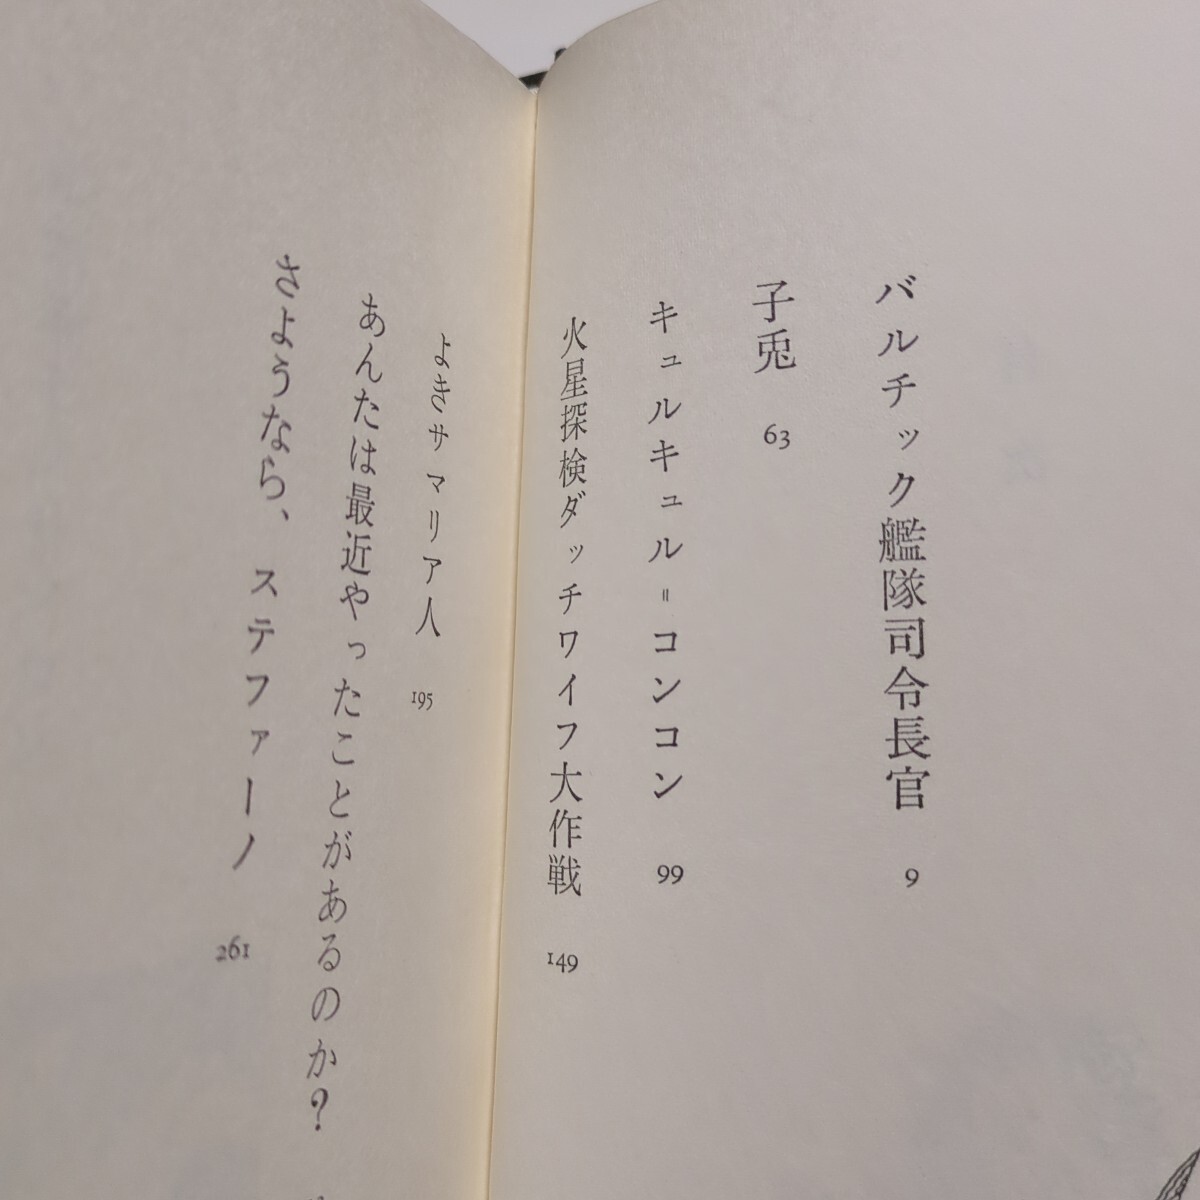 バルチック艦隊司令長官 9
子兎 63
キュルキュル＝コンコン 99
火星探検ダッチワイフ大作戦 149
よきサマリア人 195
あんたは最近やったことがあるのか？
さようなら、ステファーノ 261